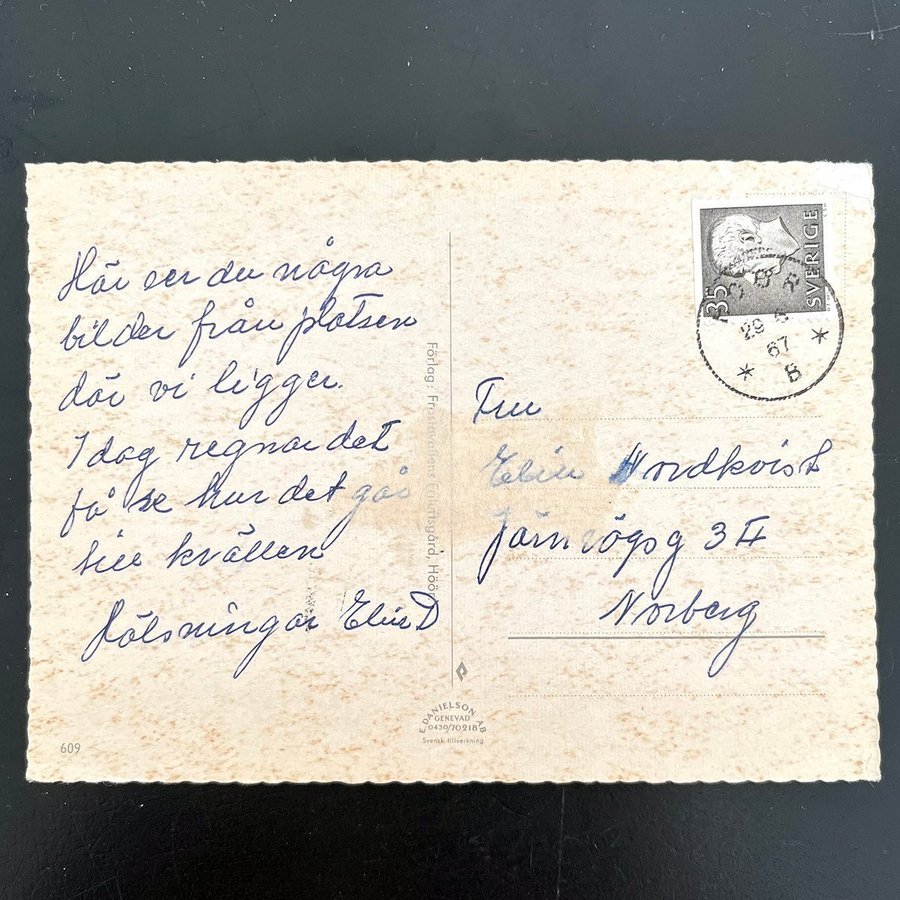 Här ser du några
bilder från platsen
där vi ligger.
I dag regnar det
få se hur det går
till kvällen
Hälsningar Elin D
Fru
Elin Nordkvist
Järnvägsg 3 II
Norberg
SVERIGE
35
29
67
B
Förlag: Friluftsgård, Höör
E. DANIELSON AB
GENEVAD
0430/70218
Svensk tillverkning
609